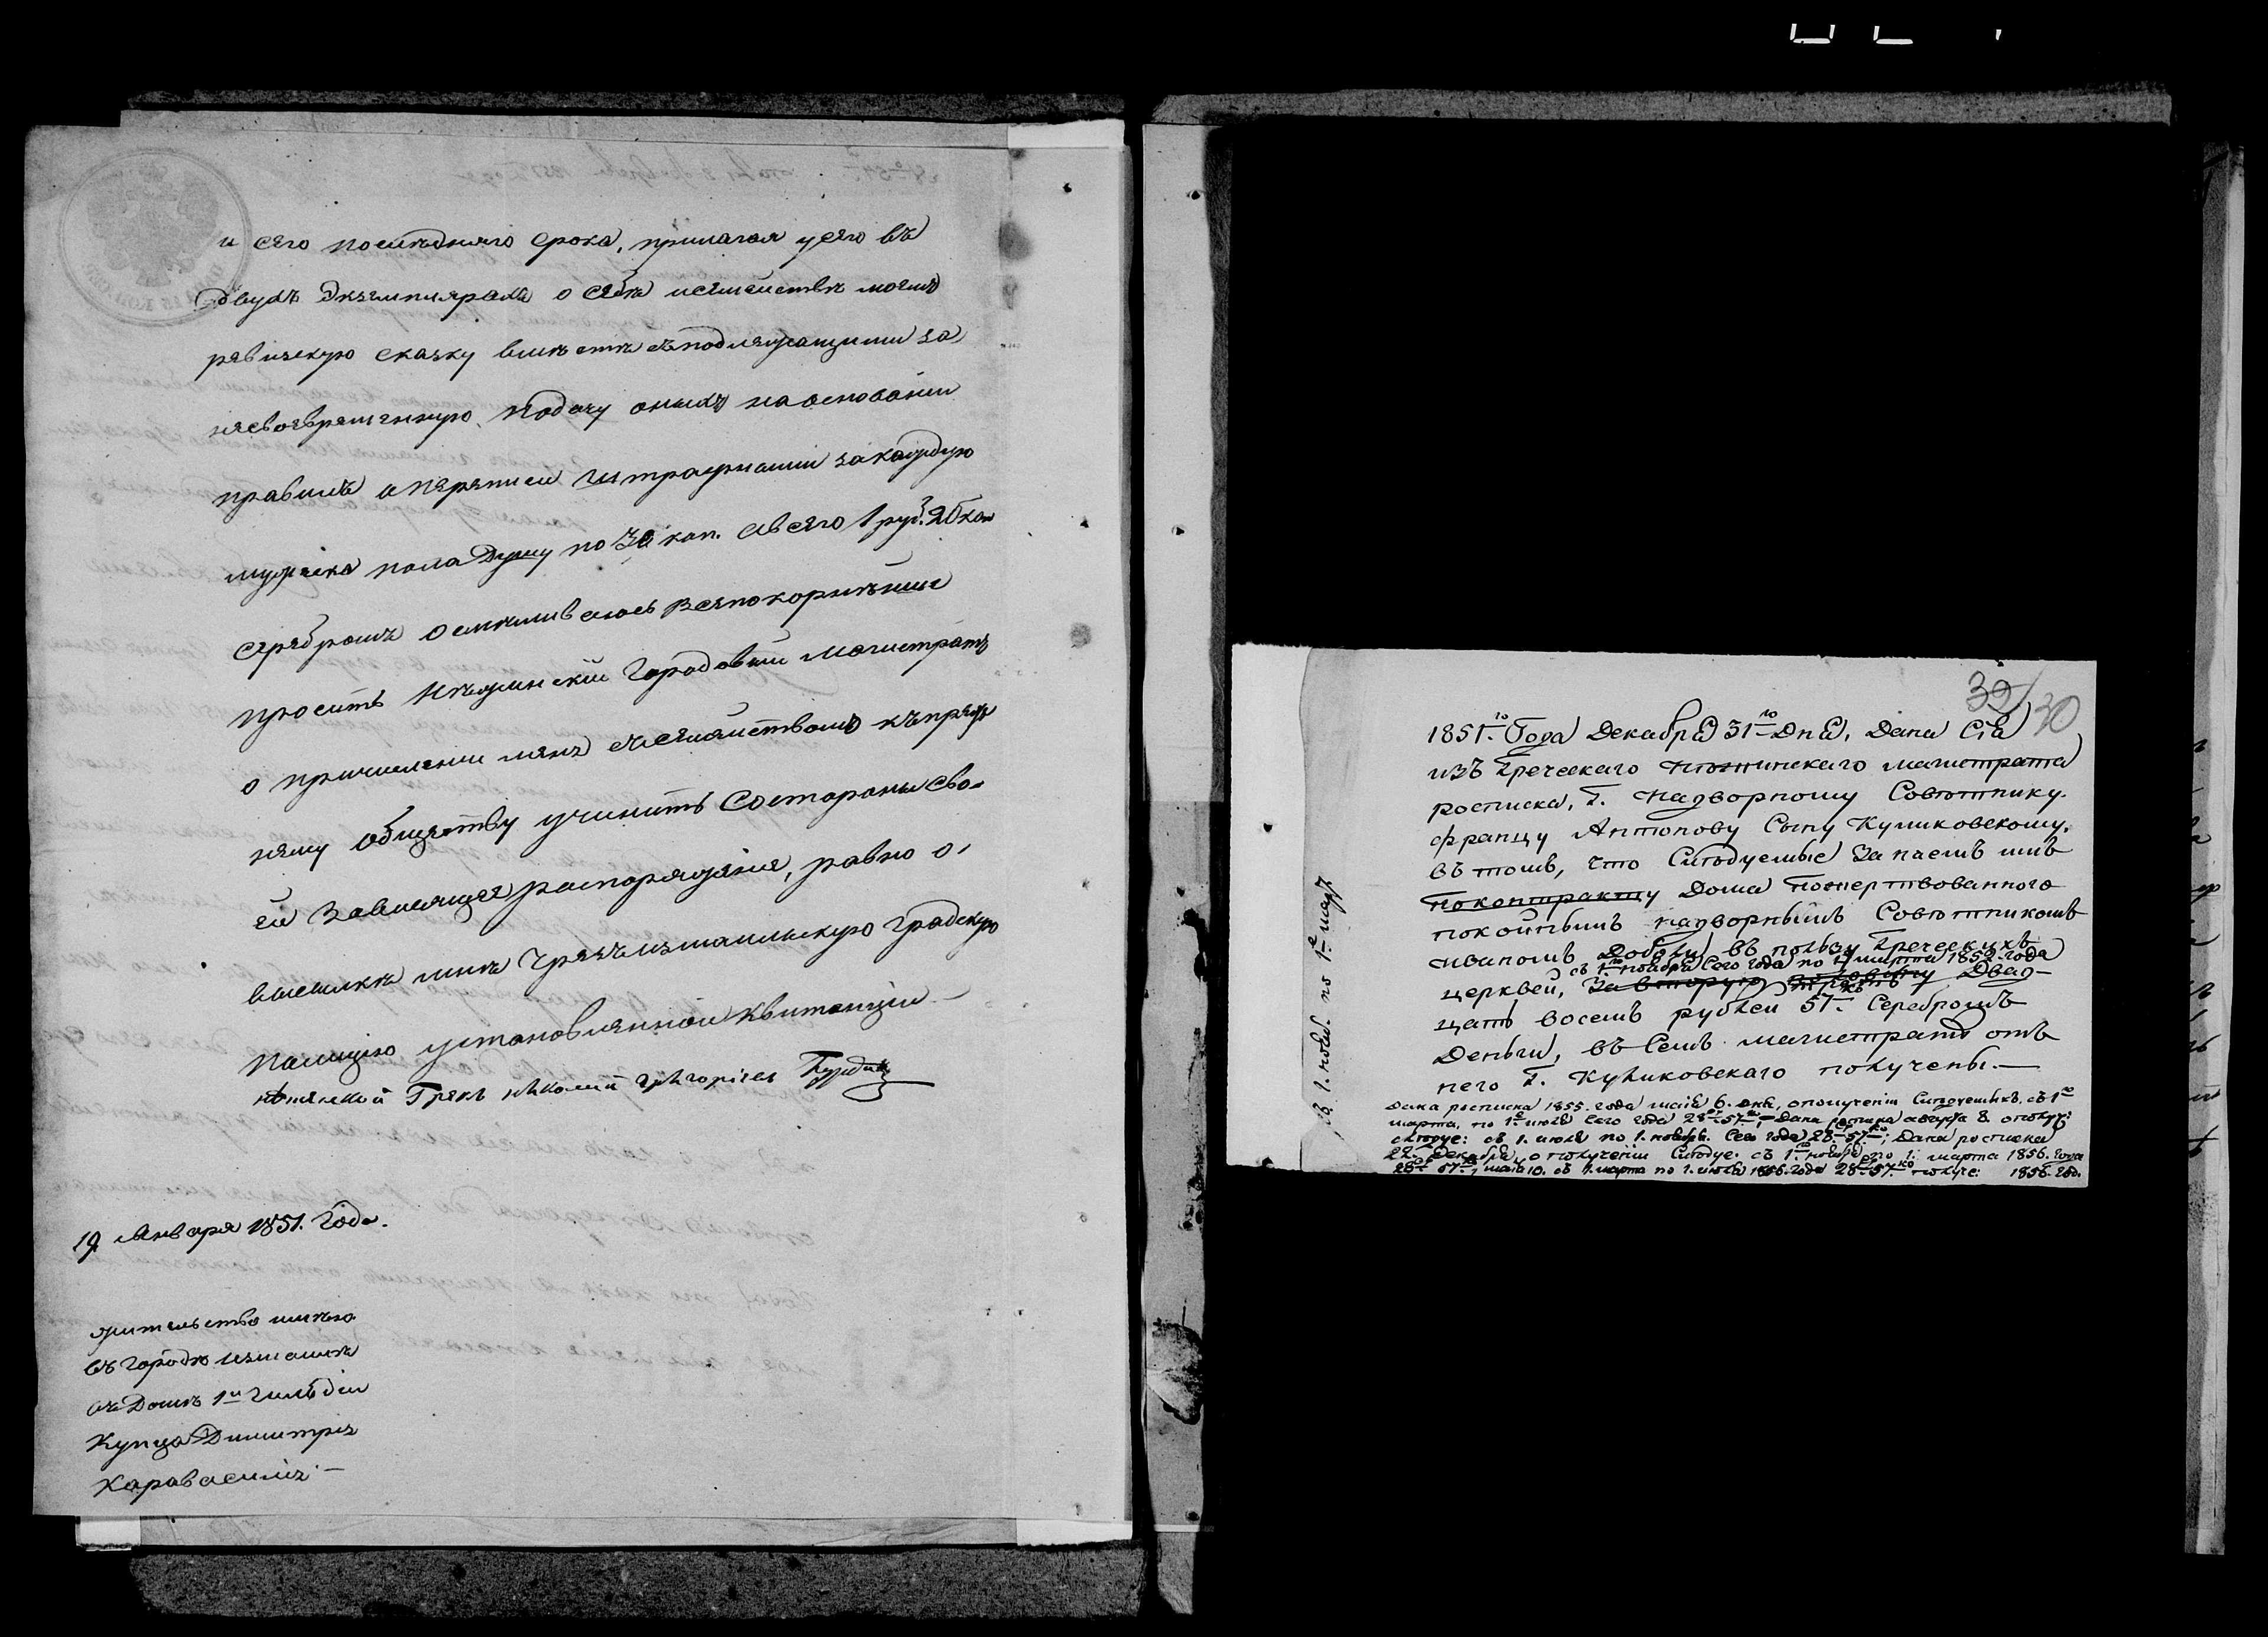 и сего последняго срока, прилагая у сего въ
двухъ экземплярахъ о себѣ и семействѣ моемъ
ревизскую сказку вмѣстѣ съ подлежащими за
несвоевременную подачу оныхъ на основаніи
правилъ о переписи штрафными за каждую
мужеска пола душу по 30 коп. а всего 1 руб. 20 коп
серебромъ осмѣливаюсь всепокорнѣйше
просить Нѣжинскій Городовый Магистратъ
о причисленіи меня съ семействомъ къ преж
нему обществу учинить со стороны сво-
ей зависящее распоряженіе, равно о
высылкѣ мнѣ чрезъ измаильскую градскую
полицію установленной квитанціи —
нѣженской Грекъ николай григоріевъ
19 Января 1851. Года.
жительство имѣю
въ городѣ измаилѣ
въ Домѣ 1й гильдіи
Купца Димитрія
Каравасилія —
32 30
1851.го Года Декабря 31го Дня, Дана Сія
изъ Греческаго Нѣжинскаго магистрата
росписка, Г. Надворному Совѣтнику
францу Антонову Сыну Куликовскому,
въ томъ, что Слѣдуемые За наемъ имъ
по контракту Дома пожертвованного
покойнымъ надворнымъ Совѣтникомъ
иваномъ въ пользу Греческихъ
съ 1го ноября Сего года по 1 марта 1852. года
церквей, За вторую треть Двад-
цать восемь рублей 57. Серебромъ
Деньги, въ Семъ магистратѣ отъ
него Г. Куликовскаго получены. —
Дана росписка 1855. года маія 6. дня, о полученіи Слѣдуемыхъ съ 1го
марта, по 1е июля Сего года 28 р. 57 ко. — Дана росписка августа 8. о получ:
слѣдуе: съ 1. июля по 1. ноября. Сего года 28 57 ко; Дана росписка
22. Декабря, о полученіи Слѣдуе. съ 1го ноября по 1. марта 1856. года
28 57 маія 10. съ 1. марта по 1. июля 1856. года 28 57 ко получе: 1856. год.
съ 1. нояб. по 1е мар